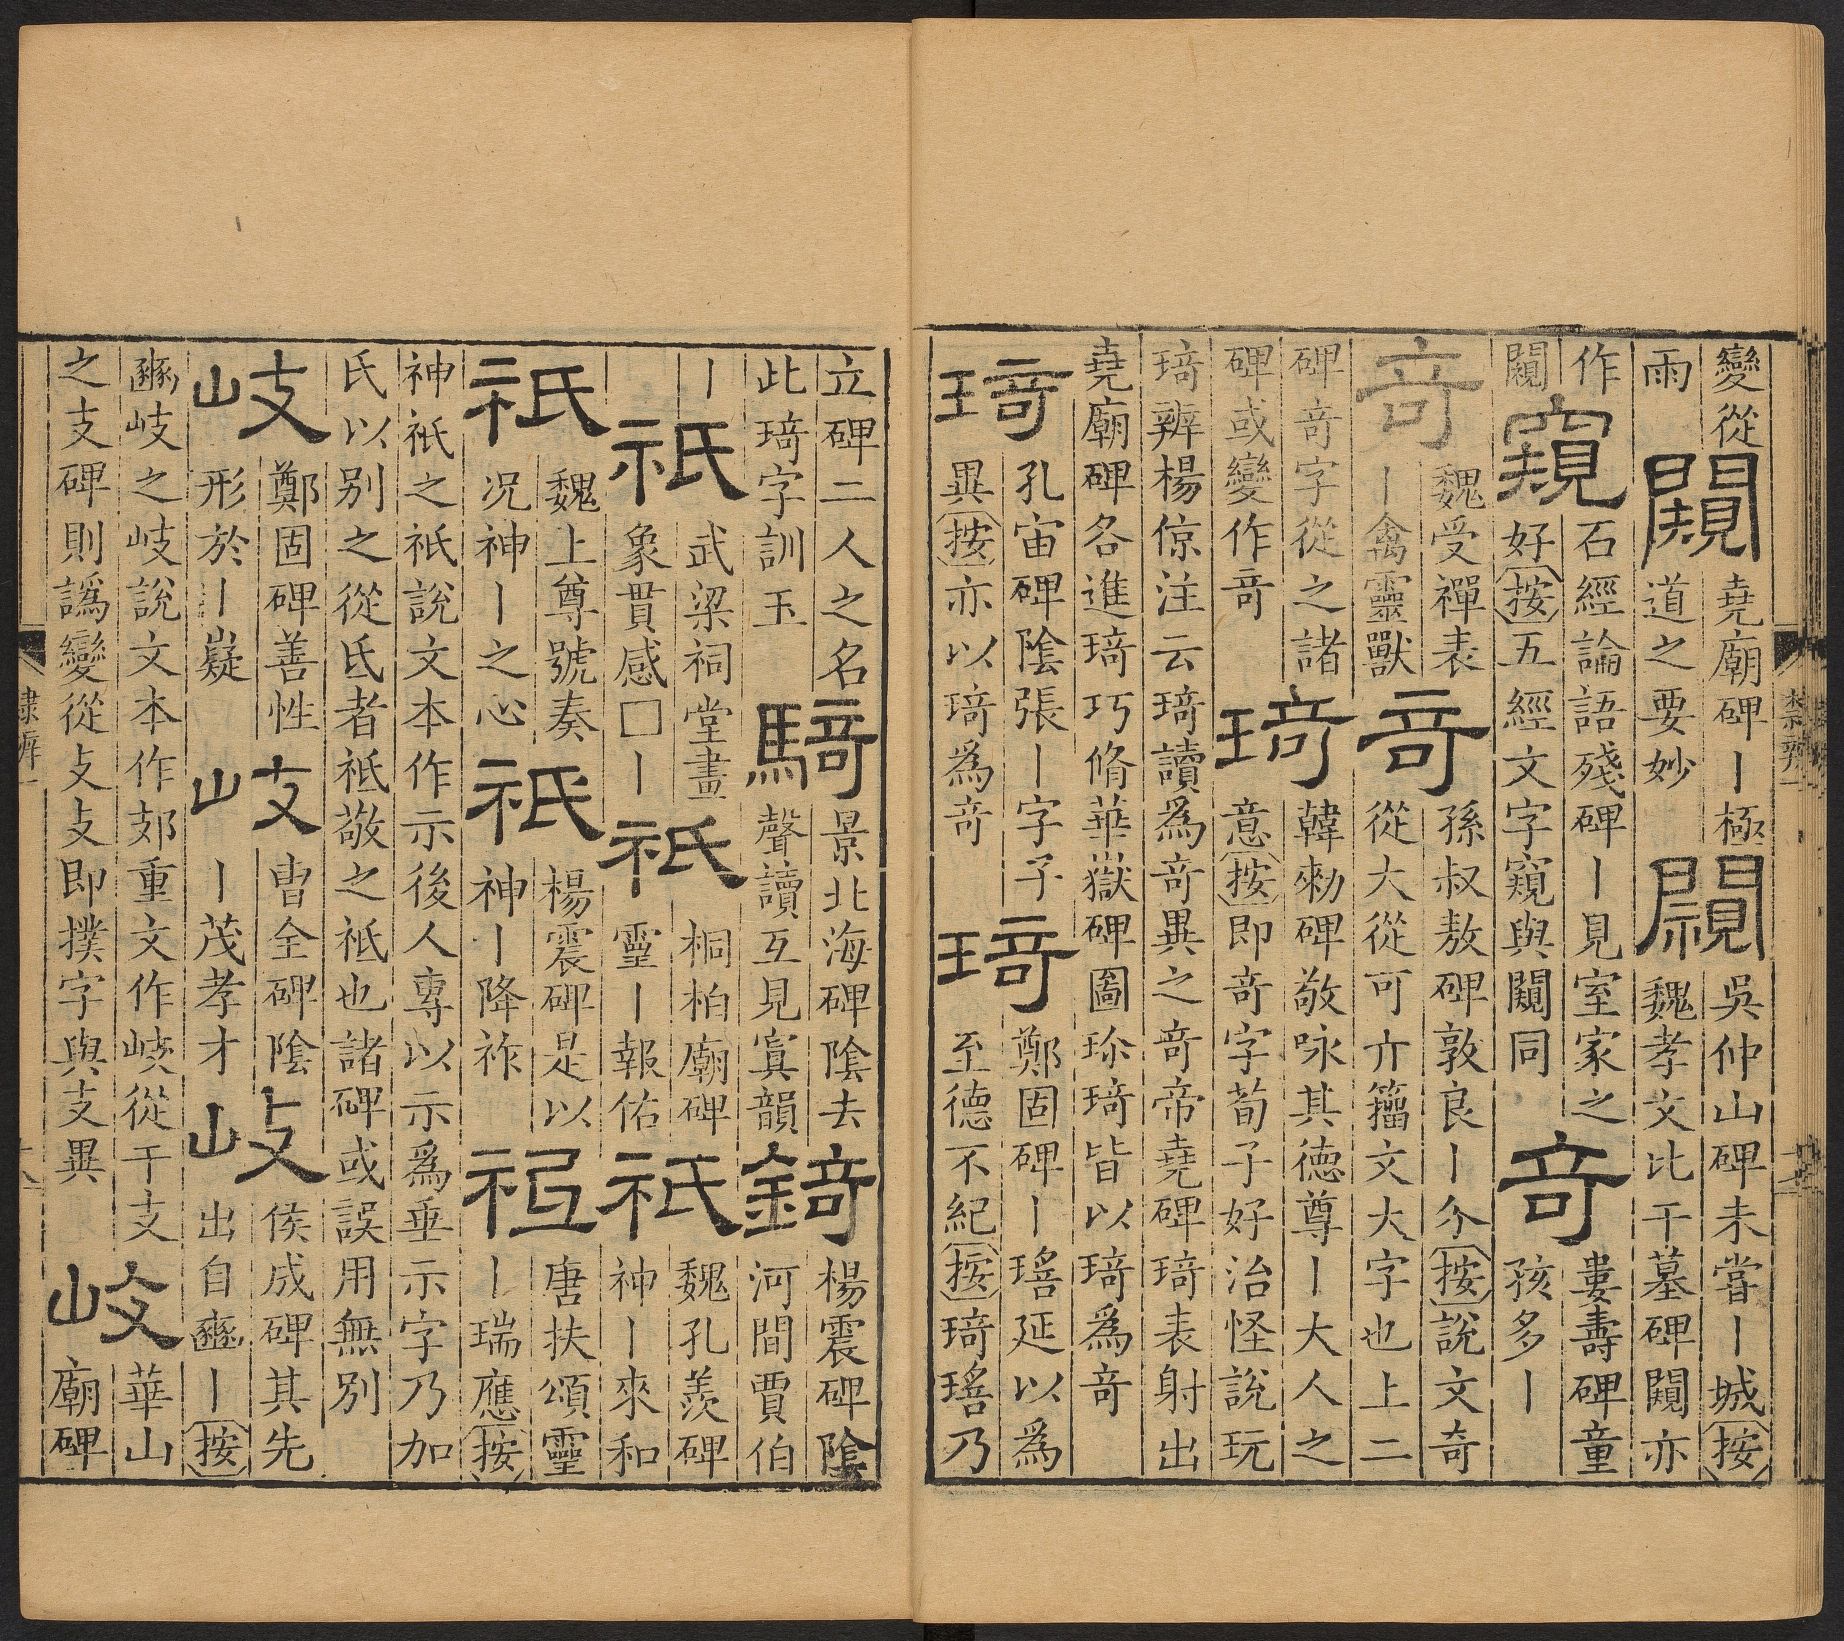 變從闚堯廟碑丨極闚吳仲山碑未嘗丨城按
雨道之要妙魏孝文比干墓碑闚亦
作窺石經論語殘碑丨見室家之竒婁壽碑童
闚好按五經文字窺與闚同孩多丨
竒魏受禪表竒孫叔敖碑敦良丨介按說文奇
丨禽靈獸從大從可亣籀文大字也上二
碑竒字從之諸琦韓勑碑敬咏其德尊丨大人之
碑或變作竒意按即竒字荀子好治怪說玩
琦辨楊倞注云琦讀爲竒異之竒帝堯碑琦表射出
堯廟碑各進琦巧脩華嶽碑圖珎琦皆以琦爲竒
琦孔宙碑陰張丨字子琦鄭固碑丨瑤延以爲
異按亦以琦爲竒至德不紀按琦瑤乃
立碑二人之名騎景北海碑陰去錡楊震碑陰
此琦字訓玉聲讀互見寘韻河間賈伯
丨祇武梁祠堂畫祇桐柏廟碑祇魏孔羨碑
象貫感□丨靈丨報佑神丨來和
祇魏上尊號奏祇楊震碑是以祇唐扶頌靈
况神丨之心神丨降祚丨瑞應按
神祇之祇說文本作示後人專以示爲垂示字乃加
氏以别之從氐者祗敬之祗也諸碑或誤用無别
岐鄭固碑善性岐曹全碑陰岐侯成碑其先
形於丨嶷丨茂孝才出自豳丨按
豳岐之岐說文本作郂重文作從千支岐華山
之支碑則譌變從攴攴即撲字與支異廟碑
隸辨一